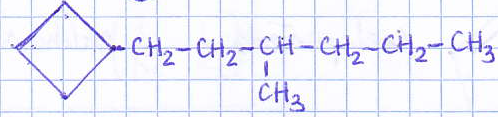 CH₂-CH₂-CH-CH₂-CH₂-CH₃
CH₃